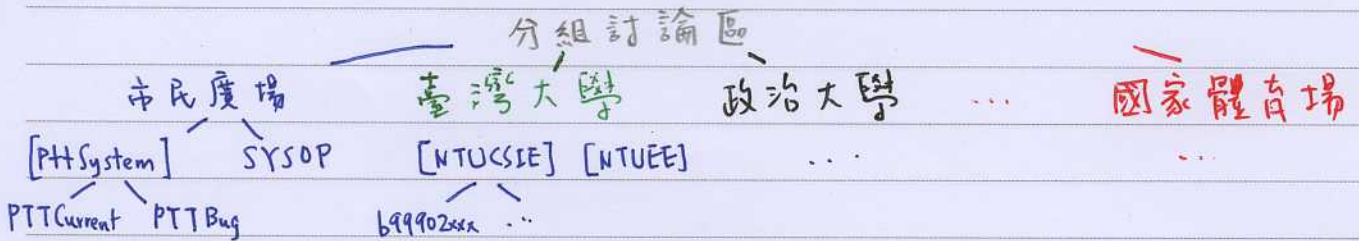 分組討論區
市民廣場 臺灣大學 政治大學 ... 國家體育場
[PttSystem] SYSOP [NTUCSIE] [NTUEE] ... ...
PTTCurrent PTTBug b99902xxx ...